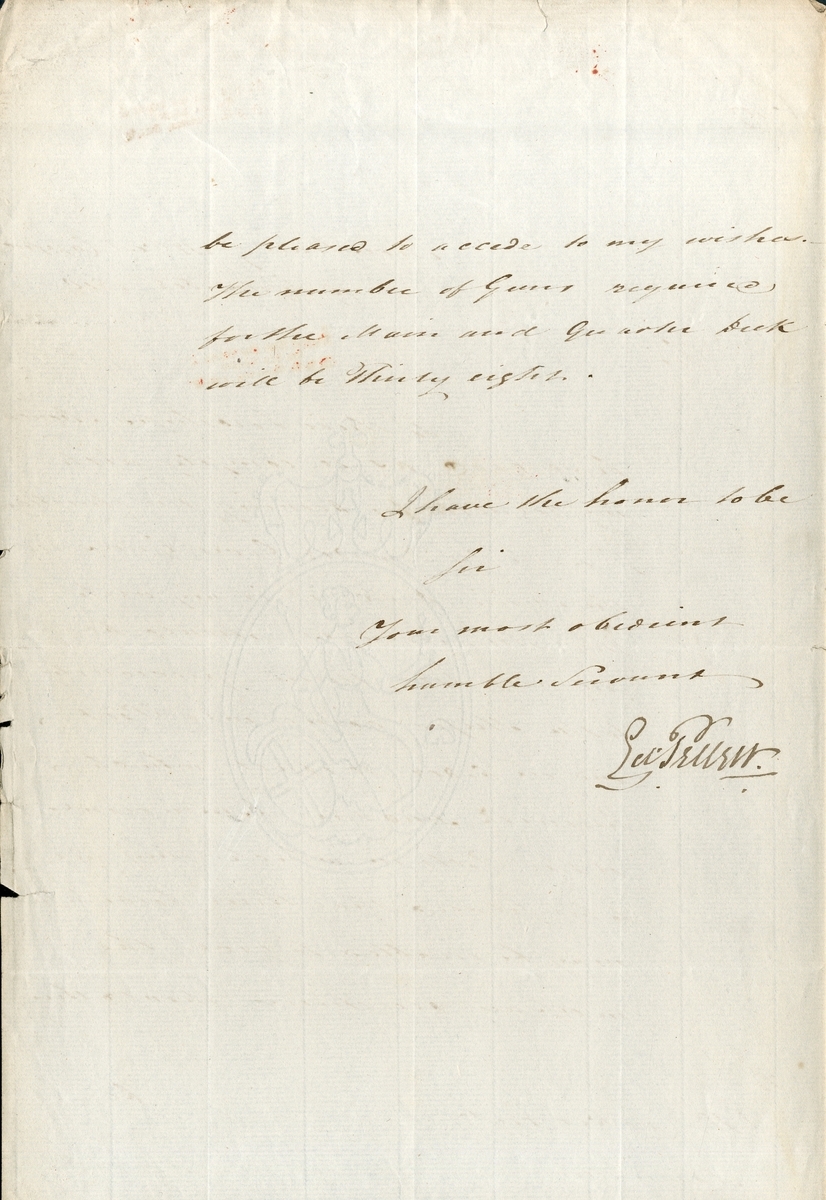 be pleased to accede to my wishes.
The number of Guns required
for the Main and Quarter Deck
will be Thirty eight.
I have the honor to be
Sir
Your most obedient
humble Servant
Ed: Pellew.